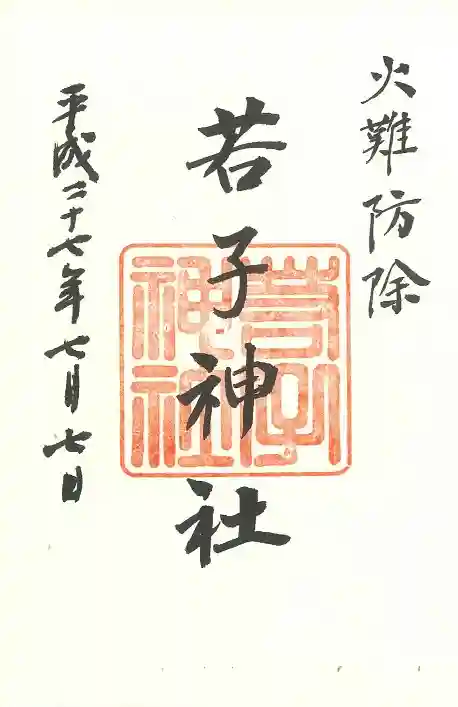 火難防除
若子神社
若子神社
平成二十七年七月七日